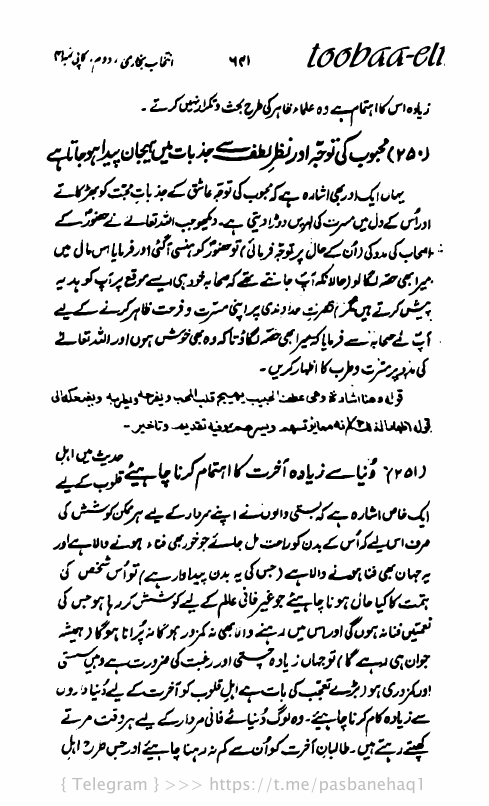 toobaa-eli
۶۴۱
انتخاب بخاری، دوم، کاپی نمبر۴
زیادہ اس کا اہتمام ہے وہ علماء ظاہر کی طرح بحث و تکرار نہیں کرتے ۔
(۲۵۰) محبوب کی توجہ اور نظرِ لطف سے جذبات میں ہیجان پیدا ہو جاتا ہے
یہاں ایک اور بھی اشارہ ہے کہ محبوب کی توجہ عاشق کے جذباتِ محبت کو بھڑکاتے
اور اُس کے دل میں مسرت کی لہریں دوڑا دیتی ہے۔ دیکھو جب اللہ تعالےٰ نے حضورؐ کے
اصحاب کی مدد کی (اُن کے حال پر توجہ فرمائی) تو حضورؐ کو ہنسی آگئی اور فرمایا اس مال میں
میرا بھی حصہ لگا لو (حالانکہ آپؐ جانتے تھے کہ صحابہ خود ہی ایسے موقع پر آپؐ کو ہدیہ
پیش کرتے ہیں مگر) نصرتِ خداوندی پر اپنی مسرت و فرحت ظاہر کرنے کے لیے
آپؐ نے صحابہؓ سے فرمایا کہ میرا بھی حصہ لگاؤ تاکہ وہ بھی خوش ہوں اور اللہ تعالےٰ
کی مدد پر مسرت و طرب کا اظہار کریں ۔
قوله وهنا اشارة وهى عطف الحبيب يهيج قلب المحب ويفرحه ويطربه
(۲۵۱) دُنیا سے زیادہ آخرت کا اہتمام کرنا چاہیئے حدیث میں اہل
قلوب کے لیے
ایک خاص اشارہ ہے کہ بستی والوں نے اپنے سردار کے لیے ہر ممکن کوشش کی
صرف اس لیے کہ اُس کے بدن کو راحت مل جائے جو خود بھی فناء ہونے والا ہے اور
یہ جہان بھی فنا ہونے والا ہے (جس کی یہ بدن پیداوار ہے) تو اُس شخص کی
ہمت کا کیا حال ہونا چاہیئے جو غیر فانی عالم کے لیے کوشش کر رہا ہو جس کی
نعمتیں فنا نہ ہوں گی اور اس میں رہنے والا بھی نہ کمزور ہوگا نہ پُرانا ہوگا (ہمیشہ
جوان ہی رہے گا) تو جہاں زیادہ چستی اور رغبت کی ضرورت ہے وہیں سستی
اور کمزوری ہو (بڑے تعجب کی بات ہے اہلِ قلوب کو آخرت کے لیے دُنیا داروں
سے زیادہ کام کرنا چاہیئے۔ وہ لوگ دُنیائے فانی مردار کے لیے ہر وقت مرتے
کھپتے رہتے ہیں۔ طالبانِ آخرت کو اُن سے کم نہ رہنا چاہیئے اور جس طرح اہل
{ Telegram } >>> https://t.me/pasbanehaq1